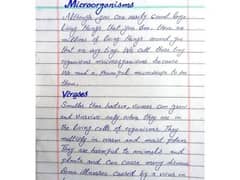 Microorganisms
Although you can easily count large
living things that you see, there are
millions of living things around you
that are very tiny. We call these tiny
organisms microorganisms because
We need a powerful microscope to see
them.
Viruses
Smaller than bacteria, viruses can grow
and survive only when they are in
the living cells of organisms. They
multiply in warm and moist places.
They are harmful to animals and
plants and can cause many disease
Some illnesses caused by a virus in